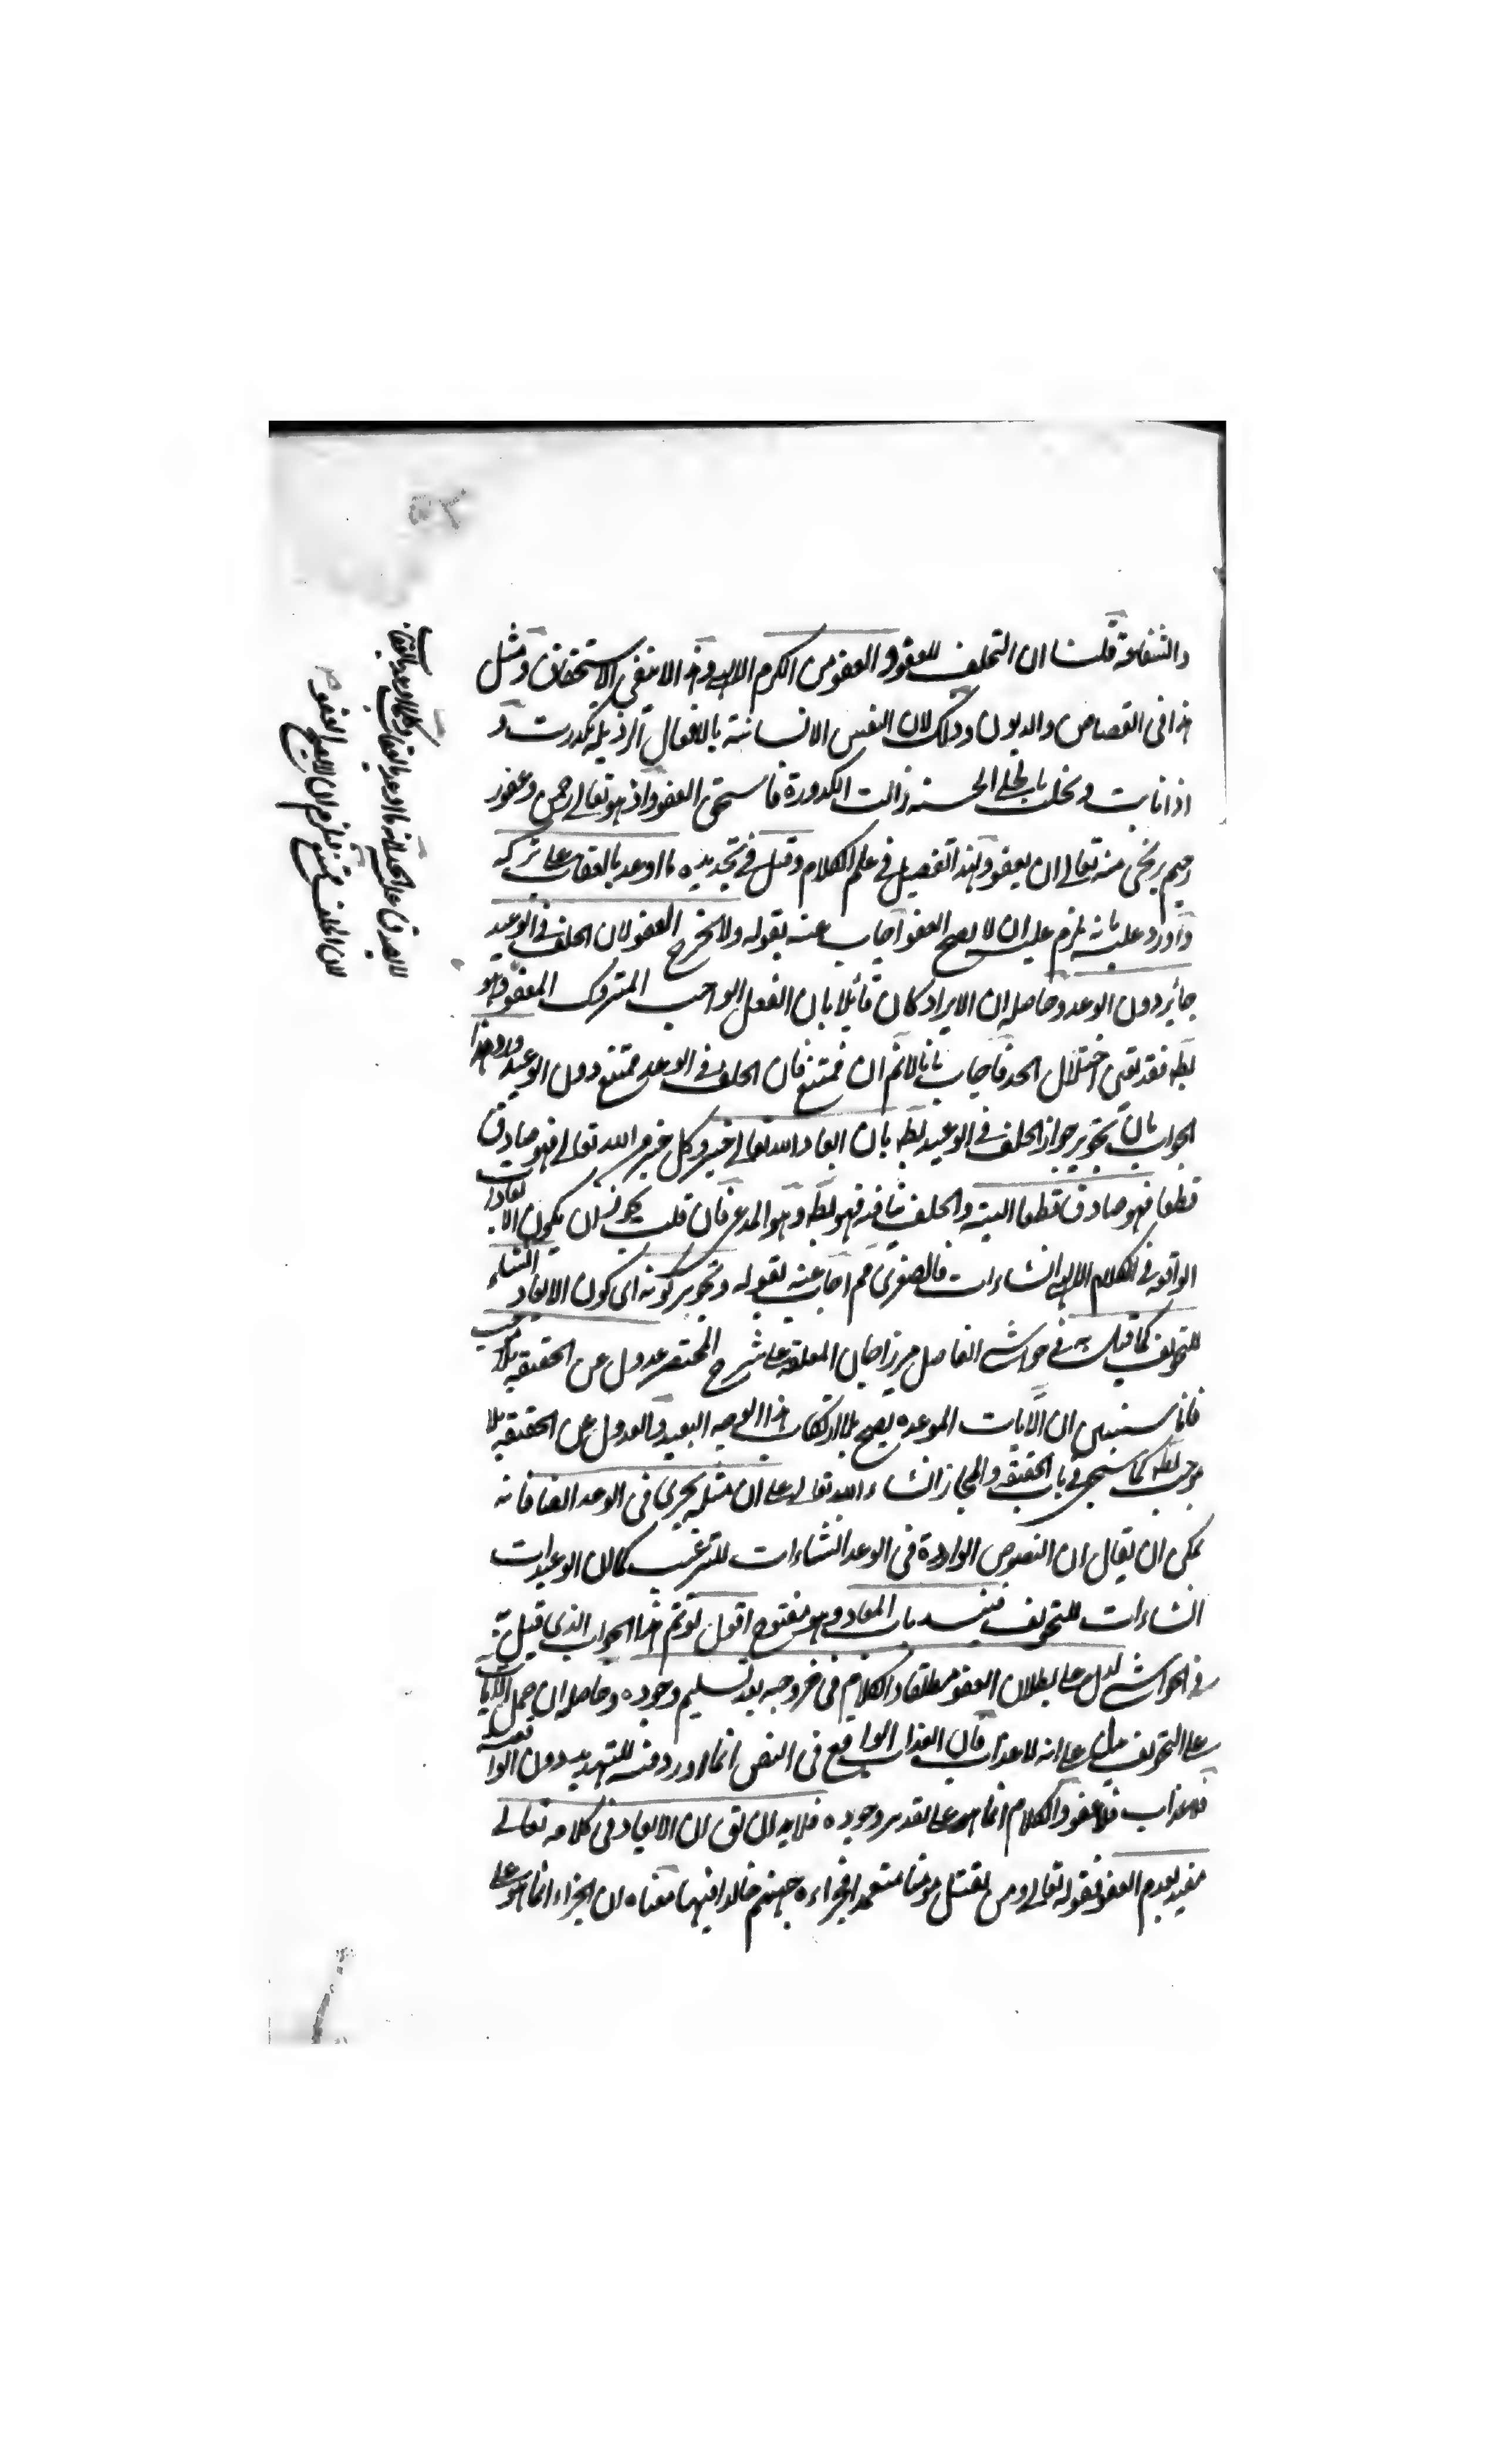 والشفاعة قلنا ان التخلف للعفو والعفو من الكرم الالهي وهذا لا ينفي الاستحقاق ومثل
هذا في القصاص والديون وذلك لان النفس الانسانية بالافعال الرذيلة تكدرت
اذا نابت بالحلي الحسنة زالت الكدورة فاستحق العفو اذ هو تعالى رحمن وعفو
رحيم يرتجى منه تعالى ان يعفو ولهذا تفصيل في علم الكلام وقيل في تحديده ما اوعد بالعقاب على تركه
واورد عليه بانه يلزم عليه ان لا يصح العفو اجاب عنه بقوله ولا يخرج العفو لان الخلف في الوعيد
جائز دون الوعد وحاصله ان الايراد كان قائلا بان الفعل الواجب المتروك المعفو هو
بطه فقد بقي اختلال الحد فاجاب بانا لانم ان ممتنع فان الخلف في الوعد ممتنع دون الوعيد ورد هذا
الجواب بان تجويز جواز الخلف في الوعيد بطه بان ايعاد الله تعالى خبر وكل خبر الله تعالى فهو صادق
قطعا فهو صادق قطعا البتة والخلف ينافيه فهو بطه وهو المدعى فان قلت يجوز ان يكون الايعادات
الواقعة في الكلام الالهي انشاءات فالصغرى مم اجاب عنه بقوله وتجويز كونه اى كون الايعاد انشاء
للتخويف كما قيل في حواشي الفاضل ميرزا جان المعلقة على شرح المختصر عدول عن الحقيقة بلا موجب
فانا سنبين ان الآيات الموعدة يصح بلا ارتكاب هذا الوجه البعيد والعدول عن الحقيقة بلا
موجب بطه كما سيجئ في باب الحقيقة والمجاز انشاء الله تعالى على ان مثله يجرى في الوعد ايضا فانه
يمكن ان يقال ان النصوص الواردة في الوعد انشاءات للترغيب كما ان الوعيدات
انشاءات للتخويف فينسد باب المعاد وهو مفتوح اقول لو تم هذا الجواب الذى قيل به
في الحواشي لدل على بطلان العفو مطلقا والكلام في خروجه بعد تسليم وجوده وحاصله ان حمل الآيات
على التخويف يدل على انه لا عذاب فان العذاب الواقع في النص انما ورد فيه للتهديد دون الواقعية
فلا عذاب فلا عفو والكلام انما هو على تقدير وجوده فلا بد ان يق ان الايعاد في كلامه تعالى
مقيد بعدم العفو فقوله تعالى ومن يقتل مؤمنا متعمدا فجزاءه جهنم خالدا فيها معناه ان الجزاء انما هو على